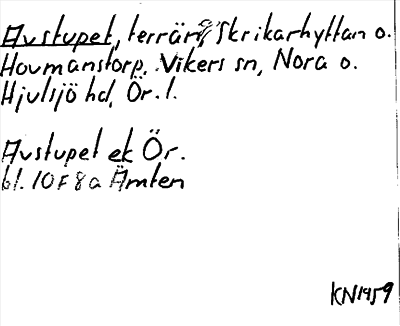 Avstupet, terräng, Skrikarhyttan o.
Hovmanstorp, Vikers sn, Nora o.
Hjulsjö hd, Ör. l.
Avstupet ek Ör.
bl. 10F 8a Ämten
KN1959